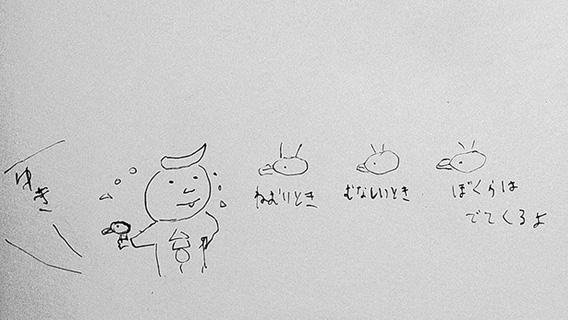 ゆき
台
ねむりとき
むなしいとき
ぼくらは
でてくるよ